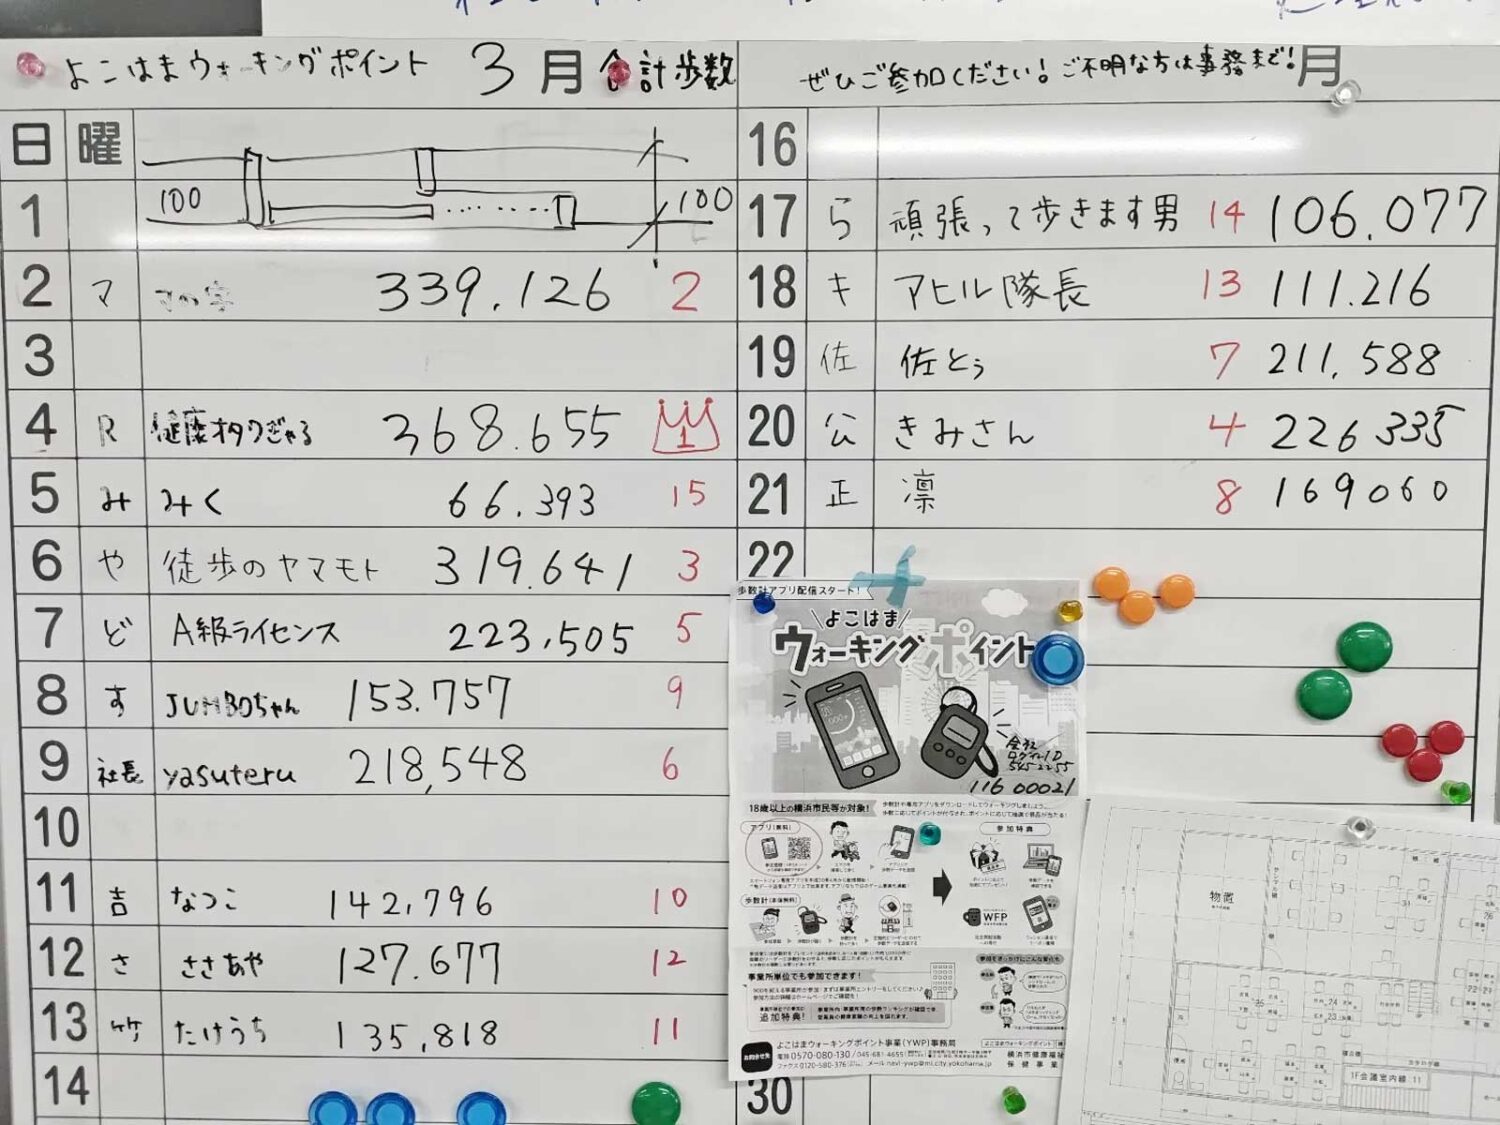 よこはまウォーキングポイント 3月 合計歩数
ぜひご参加ください！ご不明な方は事務まで！ 月
日 曜
1 100 100
2 マ マの字 339.126 2
3
4 R 健康オタクぎゃる 368.655 1
5 み みく 66.393 15
6 や 徒歩のヤマモト 319.641 3
7 ど A級ライセンス 223,505 5
8 す JUMBOちゃん 153.757 9
9 社長 yasuteru 218,548 6
10
11 吉 なつこ 142,796 10
12 さ ささあや 127.677 12
13 竹 たけうち 135,818 11
14
16
17 ら 頑張って歩きます男 14 106.077
18 キ アヒル隊長 13 111.216
19 佐 佐とぅ 7 211,588
20 公 きみさん 4 226335
21 正 凛 8 169060
22
30
歩数計アプリ配信スタート！
よこはま
ウォーキングポイント
会社
ログインID
545-2255
116 00021
18歳以上の横浜市民等が対象！
アプリ(無料)
参加特典
歩数計
WFP
事業所単位でも参加できます！
追加特典！
お問合せ先
よこはまウォーキングポイント事業(YWP)事務局
電話 0570-080-130/045-681-4655
ファクス 0120-580-376
メール navi-ywp@mi.city.yokohama.jp
よこはまウォーキングポイント
横浜市健康福祉
保健事業
物置
1F会議室内線:11